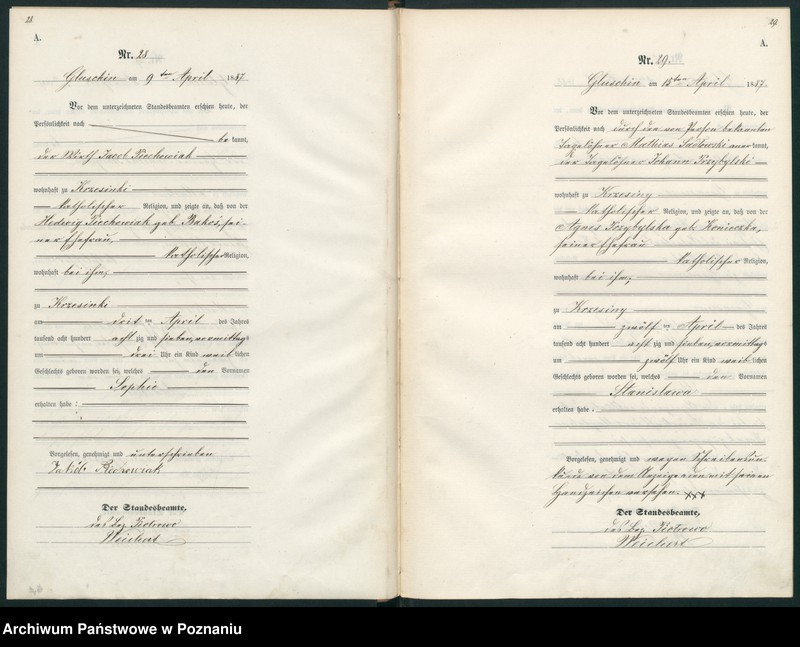 28
A.
Nr. 28
Gluschin am 9ten April 1887
Vor dem unterzeichneten Standesbeamten erschien heute, der
Persönlichkeit nach
be kannt,
der Wirth Jacob Piechowiak
wohnhaft zu Krzesinki
katholischer Religion, und zeigte an, daß von der
Hedwig Piechowiak geb. Bakoś, sei-
ner Ehefrau,
katholischer Religion,
wohnhaft bei ihm,
zu Krzesinki
am drit ten April des Jahres
tausend acht hundert acht zig und sieben, vormittags
um drei Uhr ein Kind weib lichen
Geschlechts geboren worden sei, welches den Vornamen
Sophie
erhalten habe :
Vorgelesen, genehmigt und unterschrieben
Der Standesbeamte.
Weichert
29
A.
Nr. 29.
Gluschin am 15ten April 1887.
Vor dem unterzeichneten Standesbeamten erschien heute, der
Persönlichkeit nach durch den von Person bekannten
Tagelöhner Mathias anerkannt,
der Tagelöhner Johann Przybylski
wohnhaft zu Krzesiny
katholischer Religion, und zeigte an, daß von der
Agnes Przybylska geb. Konieczka,
seiner Ehefrau
katholischer Religion,
wohnhaft bei ihm,
zu Krzesiny
am zwölf ten April des Jahres
tausend acht hundert acht zig und sieben, vormittags
um zwölf Uhr ein Kind weib lichen
Geschlechts geboren worden sei, welches den Vornamen
Stanislawa
erhalten habe .
Vorgelesen, genehmigt und wegen Schreibensun-
kunde von dem Anzeigenden mit seinen
Handzeichen versehen. xxx
Der Standesbeamte.
Weichert
Archiwum Państwowe w Poznaniu